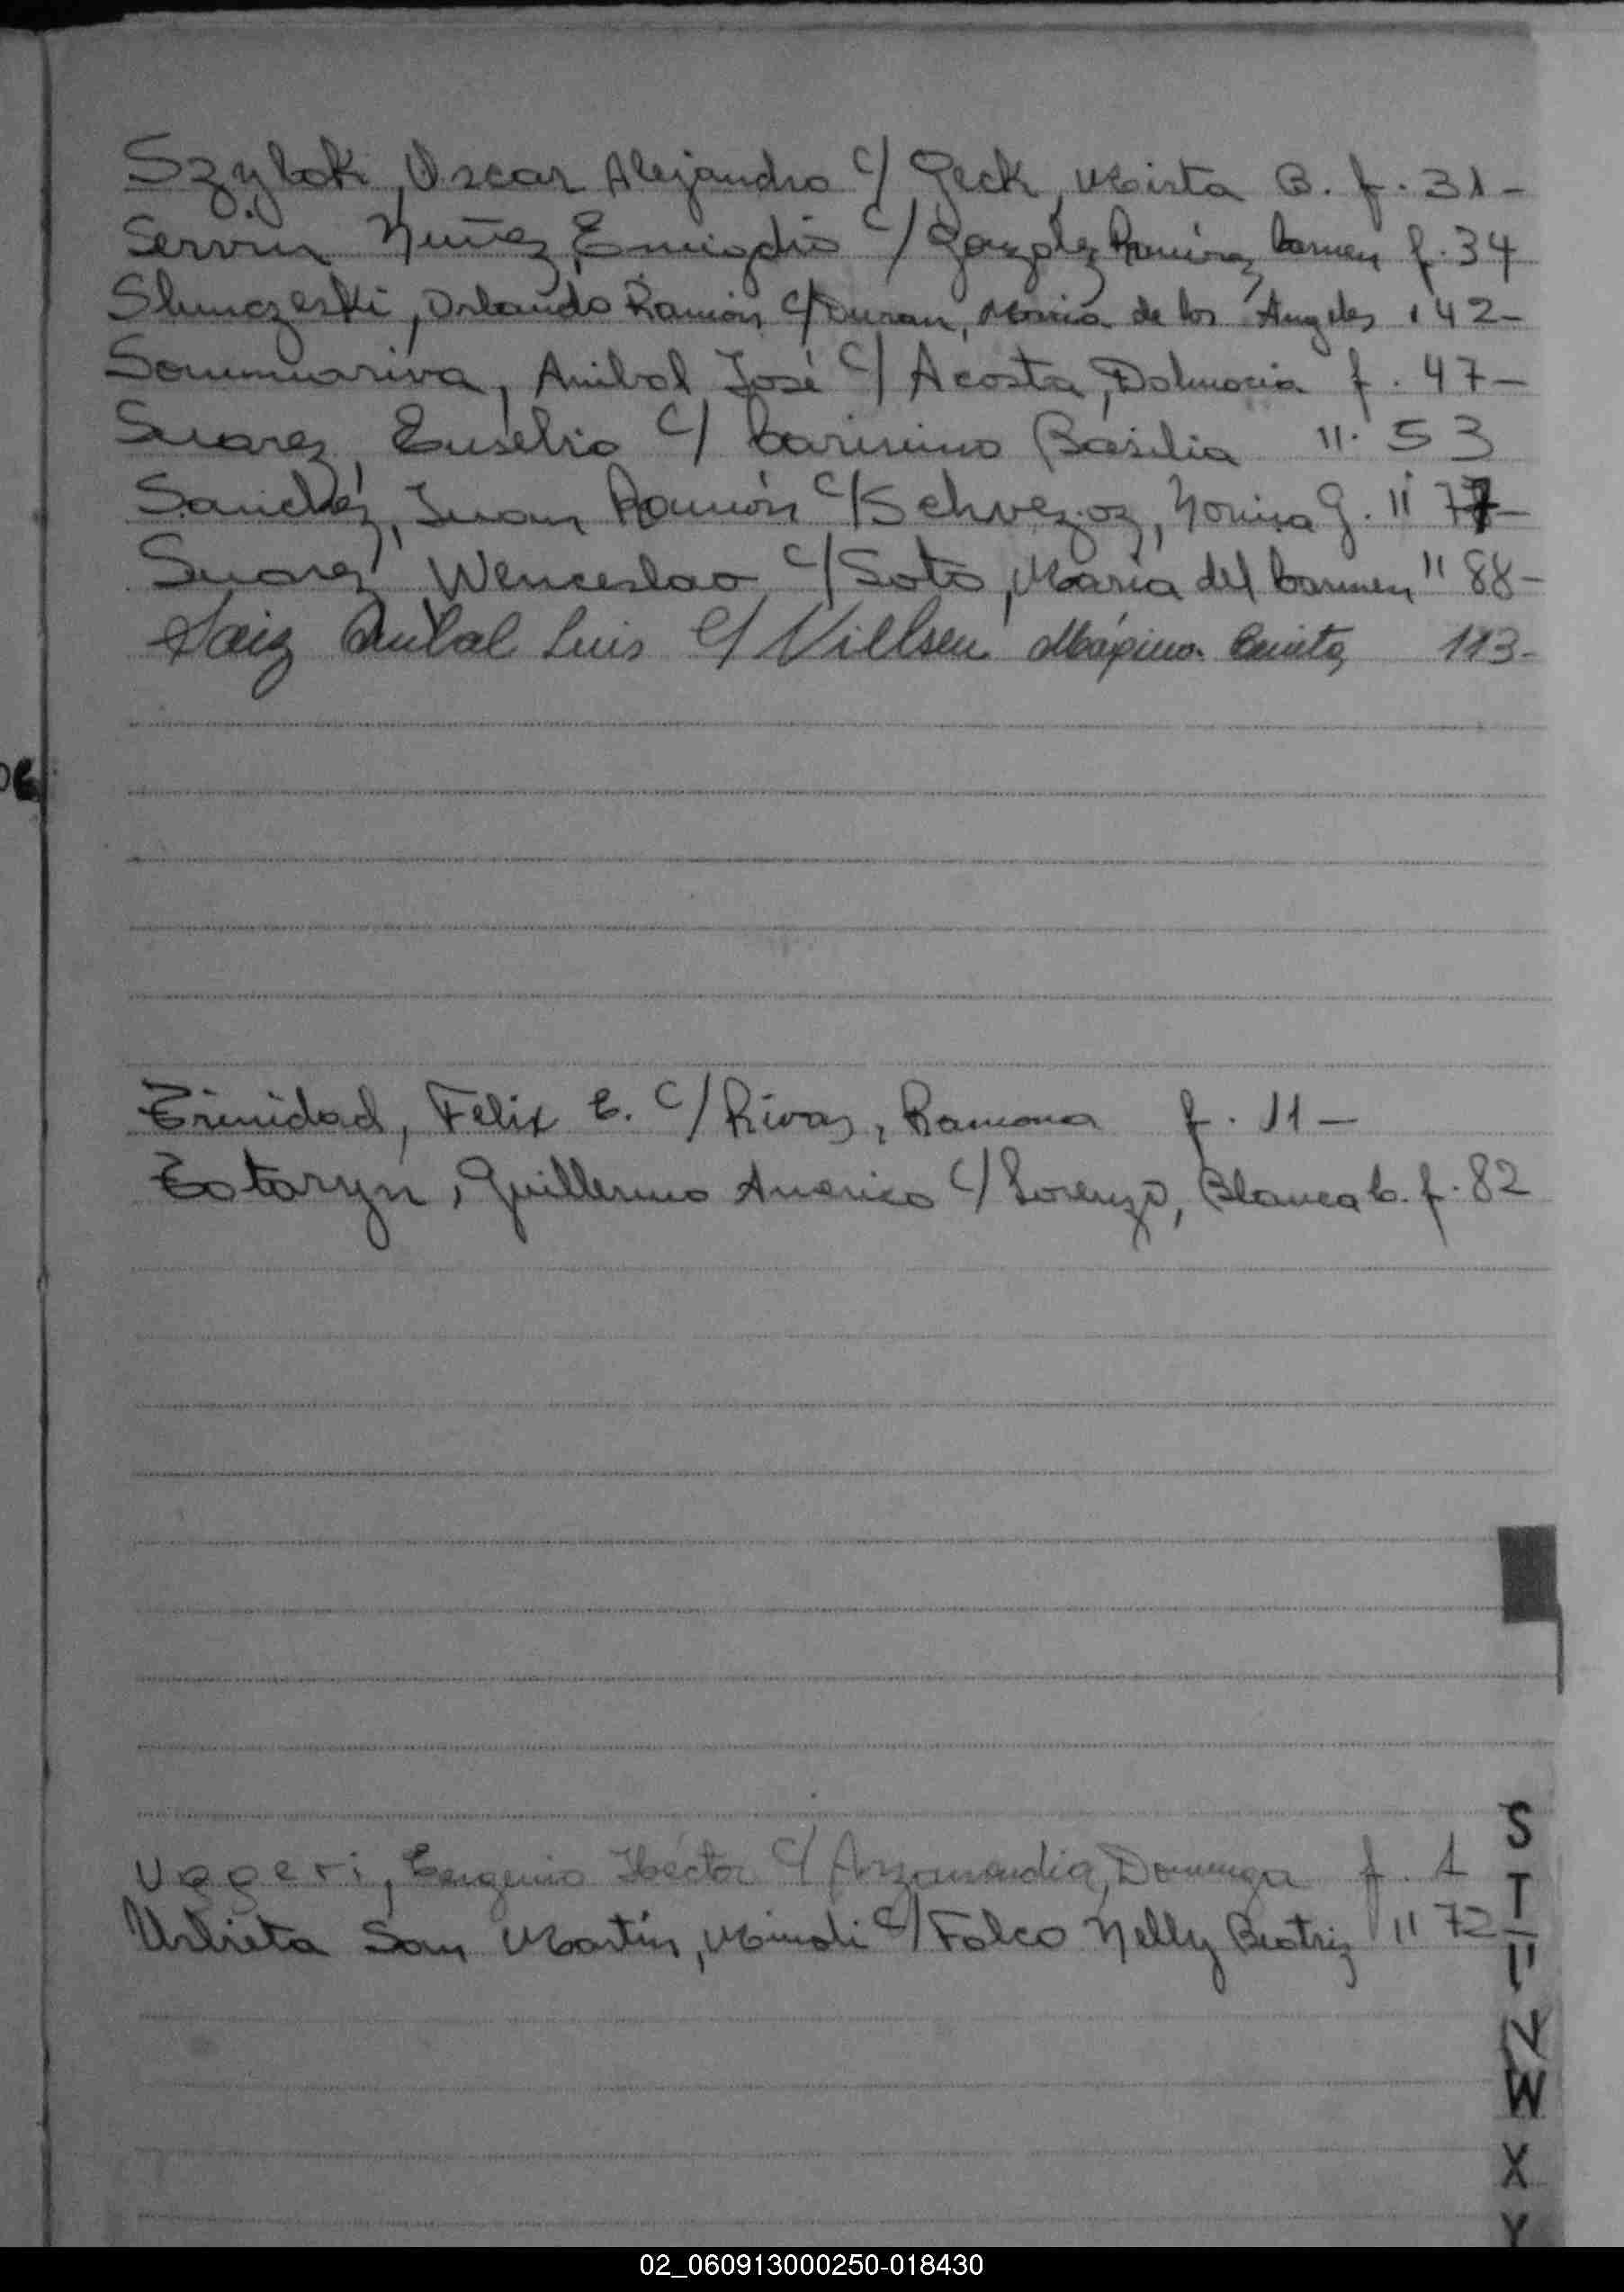 Szybok, Oscar Alejandro c/ Geck, Mirta B. f. 31-
Servin Nuñez, Emigdio c/ González Ramirez, Carmen f. 34
Slunczeski, Orlando Ramón c/ Duran, Maria de los Angeles " 42-
Sommariva, Anibal José c/ Acosta, Dalmacia f. 47-
Suarez, Eusebio c/ Basilia " 53
Sanchez, Juan Ramón c/ Schvezoz, Norma G. " 77-
Suarez Wenceslao c/ Soto, María del Carmen " 88-
Saiz Anibal Luis c/ Villsen Máxima Benita 113-
06
Trinidad, Felix C. c/ Rivas, Ramona f. 11-
Totaryn, Guillermo Americo c/ Lorenzo, Blanca C. f. 82
Uggeri, Eugenio Héctor c/ Arzamendia, Dominga f. 1
Urbieta San Martín, c/ Falco Nelly Beatriz " 72-
S
T
U
V
W
X
Y
02_060913000250-018430